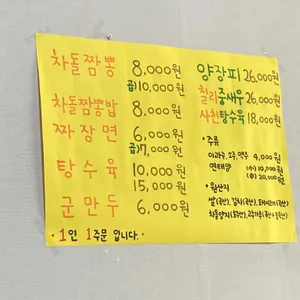 차돌짬뽕 8,000원
곱)10,000원
차돌짬뽕밥 8,000원
짜장면 6,000원
곱)7,000원
탕수육 10,000원
15,000원
군만두 6,000원
·1인 1주문 입니다.·
양장피 26,000원
칠리중새우 26,000원
사천탕수육 18,000원
·주류
이과두,소주,맥주 4,000원
연태고량 (小) 10,000원
20,000원
·원산지
쌀(국산), 김치(국산),